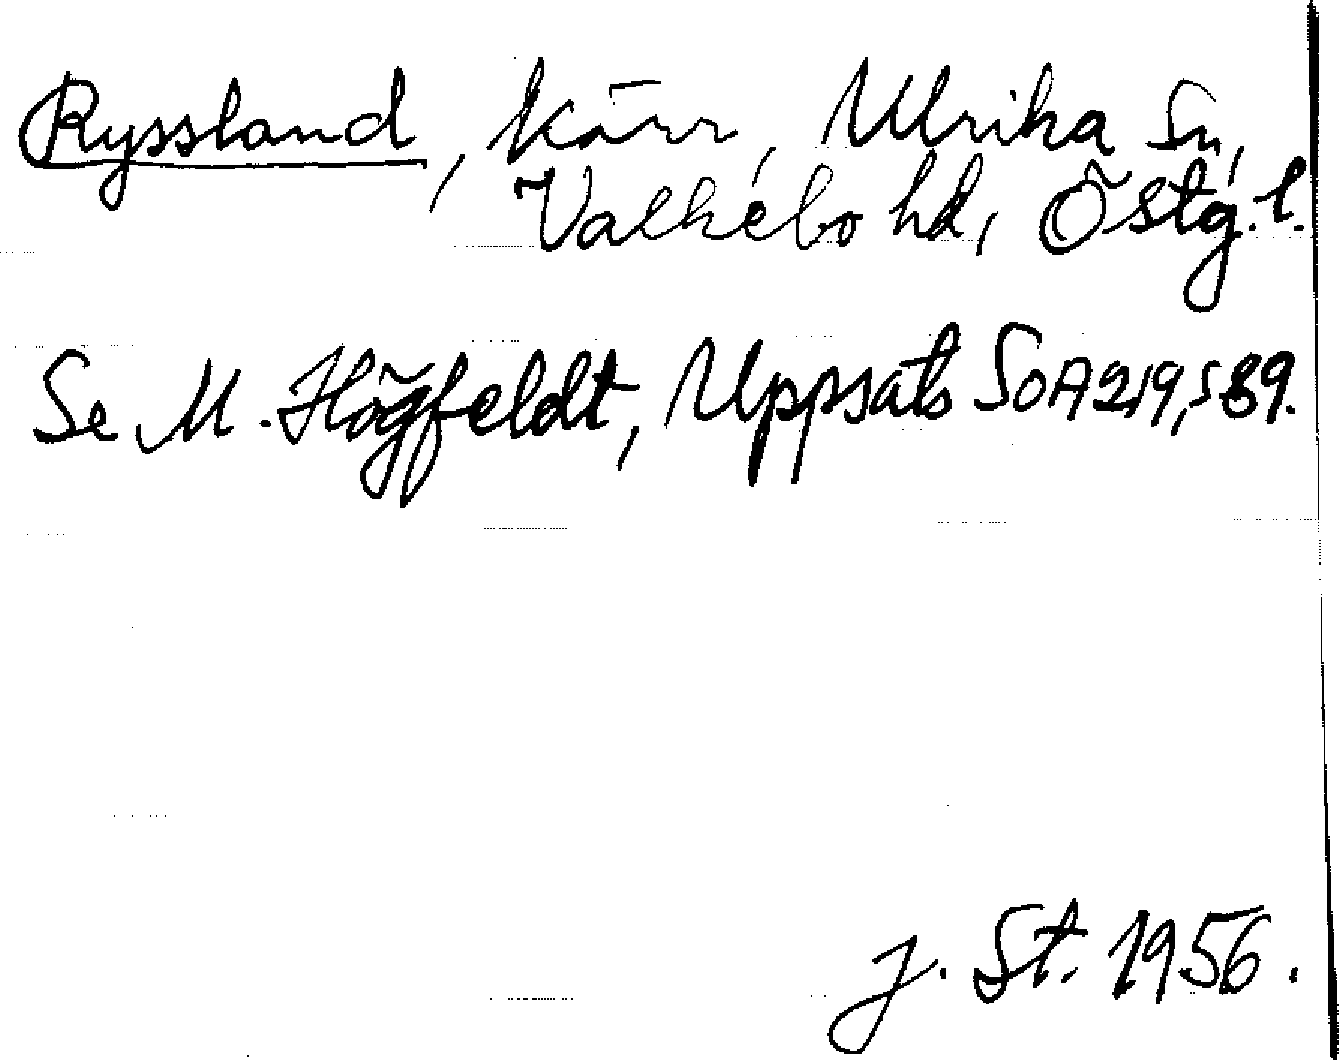 Ryssland, kärr, Ulrika sn,
Valkebo hd, Östg. l.
Se M. Högfeldt, Uppsats SOA 219, s 89.
J. St. 1956.